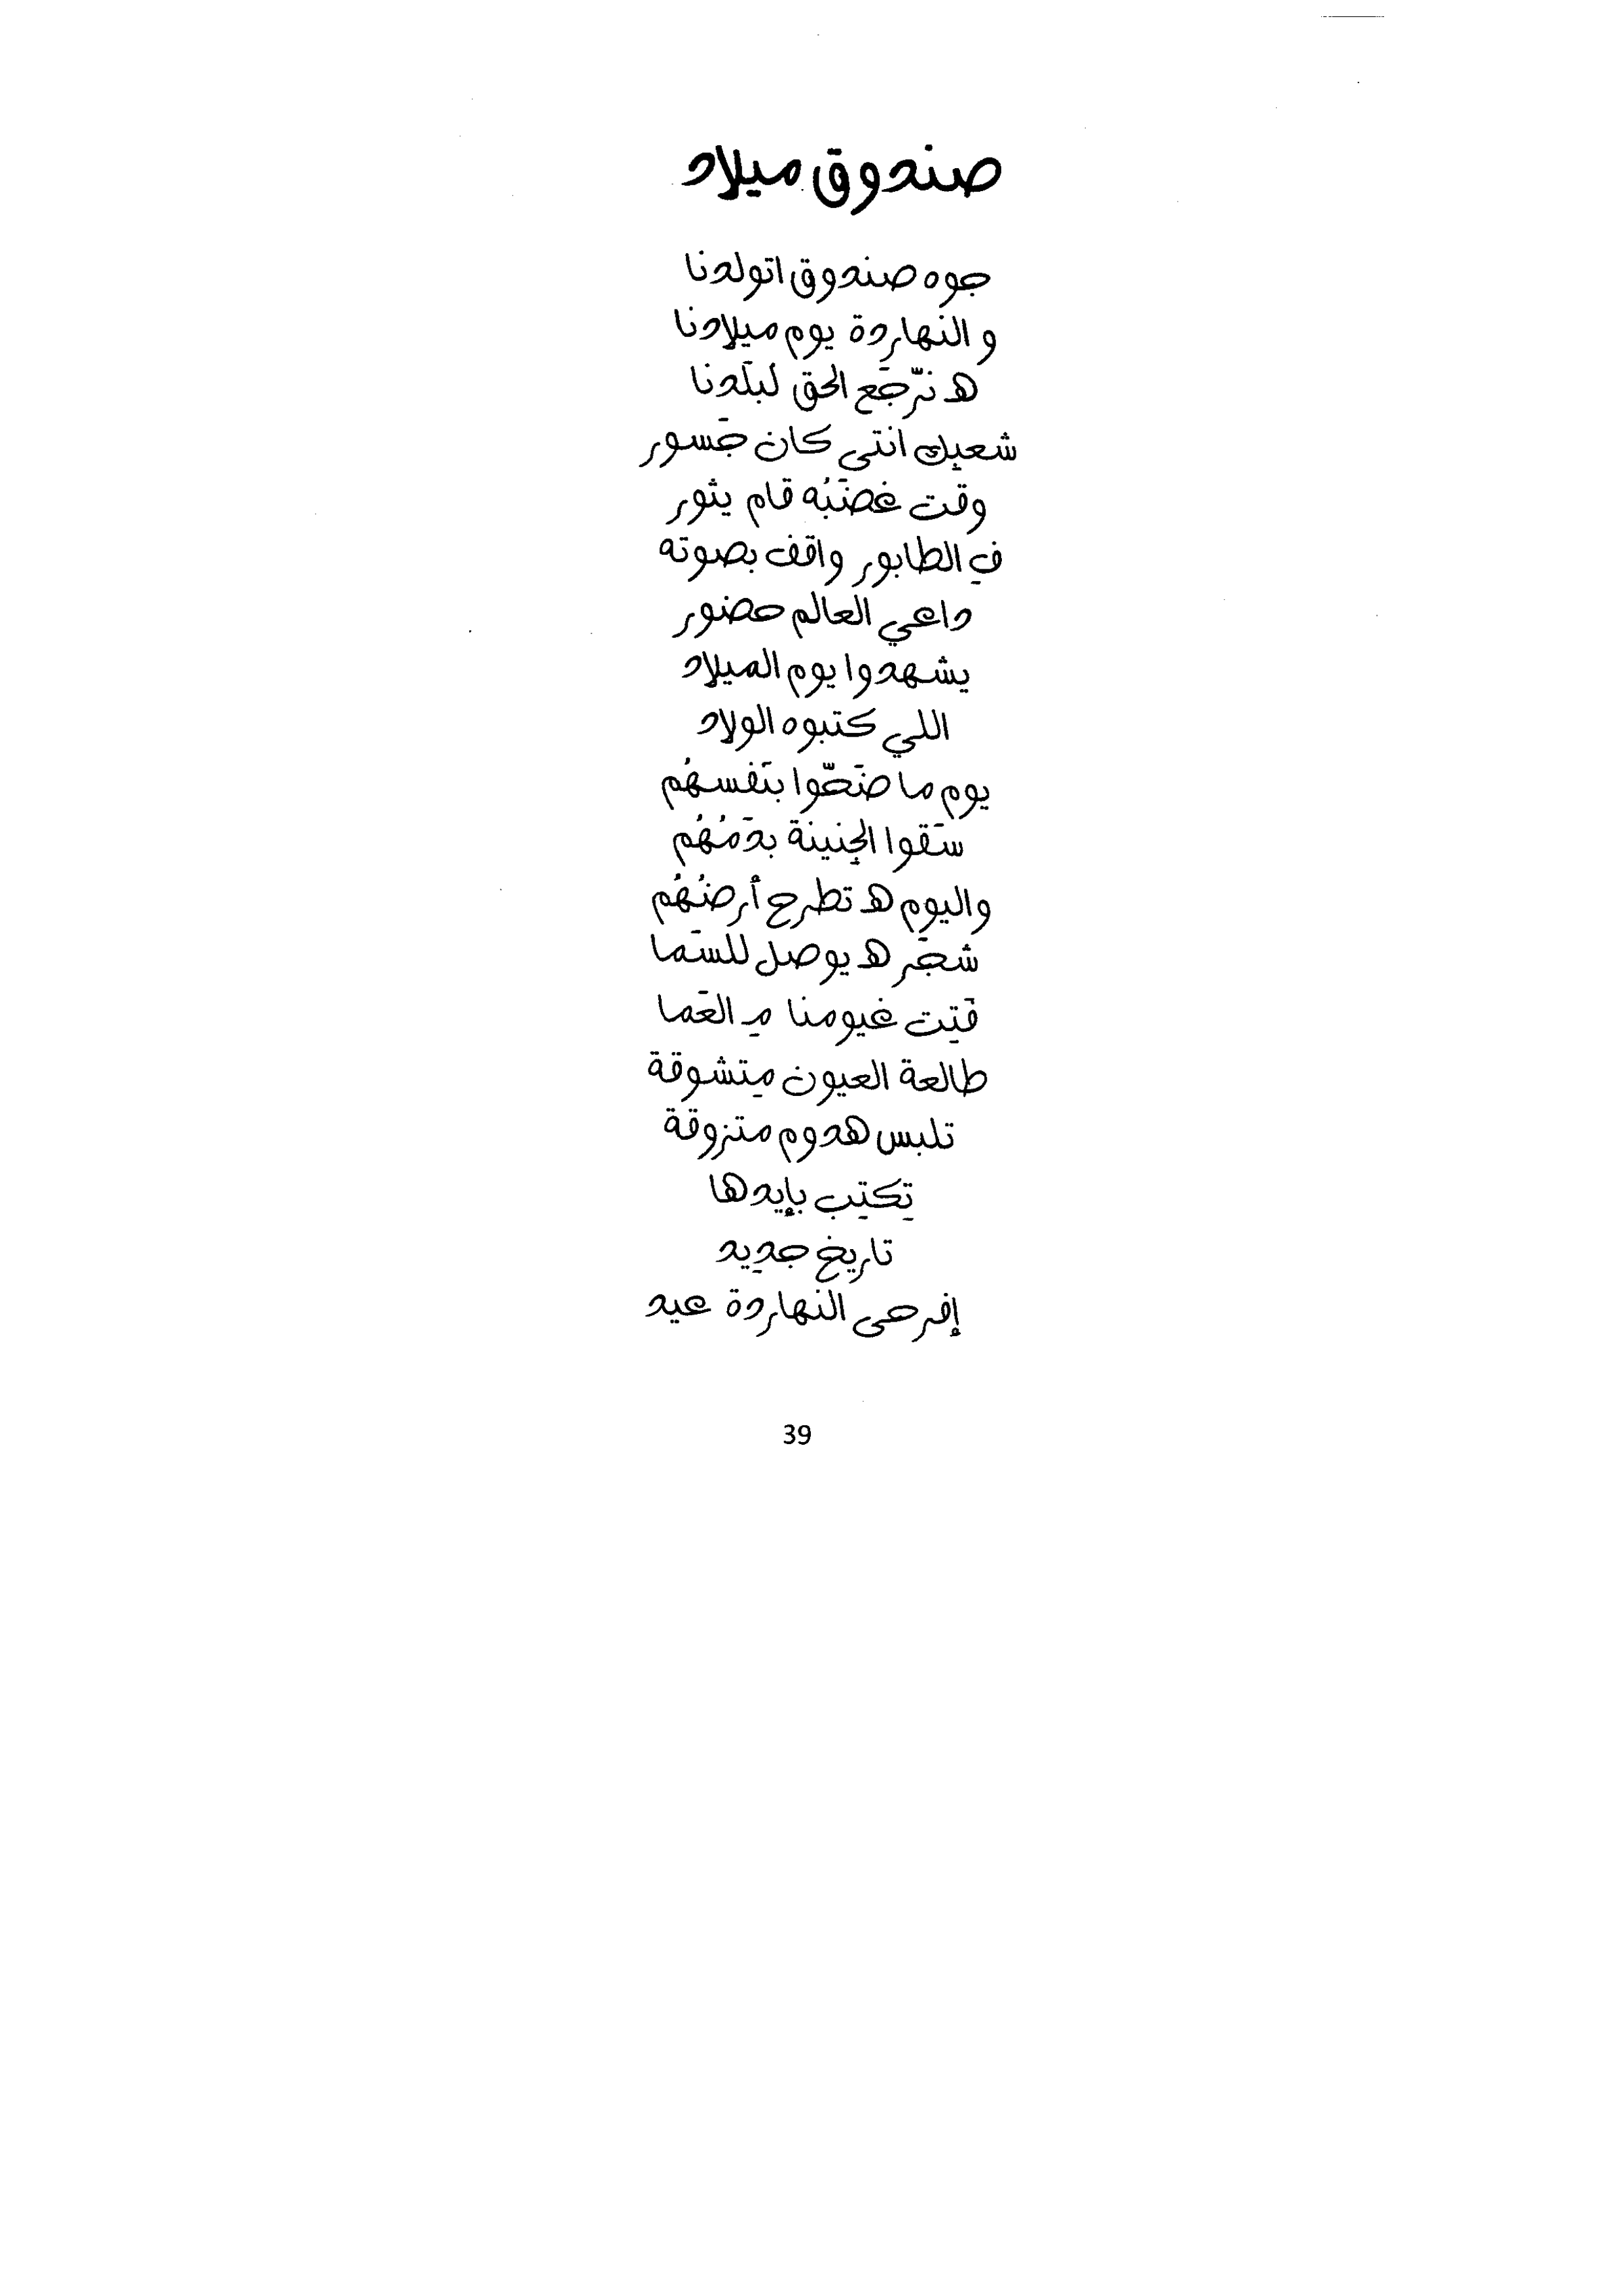 صندوق ميلاد
جوه صندوق اتولدنا
و النهاردة يوم ميلادنا
هـ نرّجَع الحق لبَلَدنا
شعبِك انتى كان جَسور
وقت غضَبُه قام يثور
في الطابور واقف بصوته
داعي العالم حضور
يشهدوا يوم الميلاد
اللي كتبوه الولاد
يوم ما ضَحّوا بنَفسهُم
سَقوا الجِنينة بدَمُهُم
واليوم هـ تطرح أرضُهُم
شجَر هـ يوصل للسَما
فَتِت غيومنا مِـ العَما
طالعة العيون مِتشوقة
تلبس هدوم متزوقة
تِكتِب بإيدها
تاريخ جدِيد
إفرحى النهاردة عيد
39